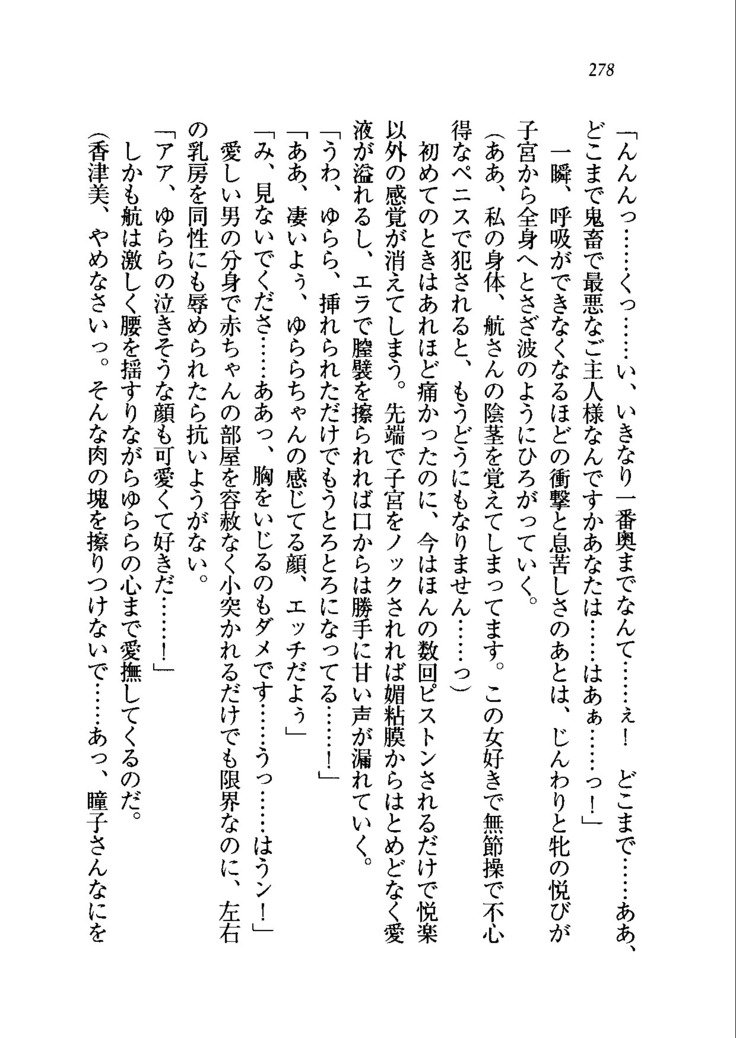 278
「んんんっ……くっ……い、いきなり一番奥までなんて……ぇ！　どこまで……ああ、
どこまで鬼畜で最悪なご主人様なんですかあなたは……はあぁ……っ！」
一瞬、呼吸ができなくなるほどの衝撃と息苦しさのあとは、じんわりと牝の悦びが
子宮から全身へとさざ波のようにひろがっていく。
（ああ、私の身体、航さんの陰茎を覚えてしまってます。この女好きで無節操で不心
得なペニスで犯されると、もうどうにもなりません……っ）
初めてのときはあれほど痛かったのに、今はほんの数回ピストンされるだけで悦楽
以外の感覚が消えてしまう。先端で子宮をノックされれば媚粘膜からはとめどなく愛
液が溢れるし、エラで膣襞を擦られれば口からは勝手に甘い声が漏れていく。
「うわ、ゆらら、挿れられただけでもうとろとろになってる……！」
「ああ、凄いよぅ、ゆららちゃんの感じてる顔、エッチだよぅ」
「み、見ないでくださ……ああっ、胸をいじるのもダメです……うっ……はうン！」
愛しい男の分身で赤ちゃんの部屋を容赦なく小突かれるだけでも限界なのに、左右
の乳房を同性にも辱められたら抗いようがない。
「アア、ゆららの泣きそうな顔も可愛くて好きだ……！」
しかも航は激しく腰を揺すりながらゆららの心まで愛撫してくるのだ。
（香津美、やめなさいっ。そんな肉の塊を擦りつけないで……あっ、瞳子さんなにを